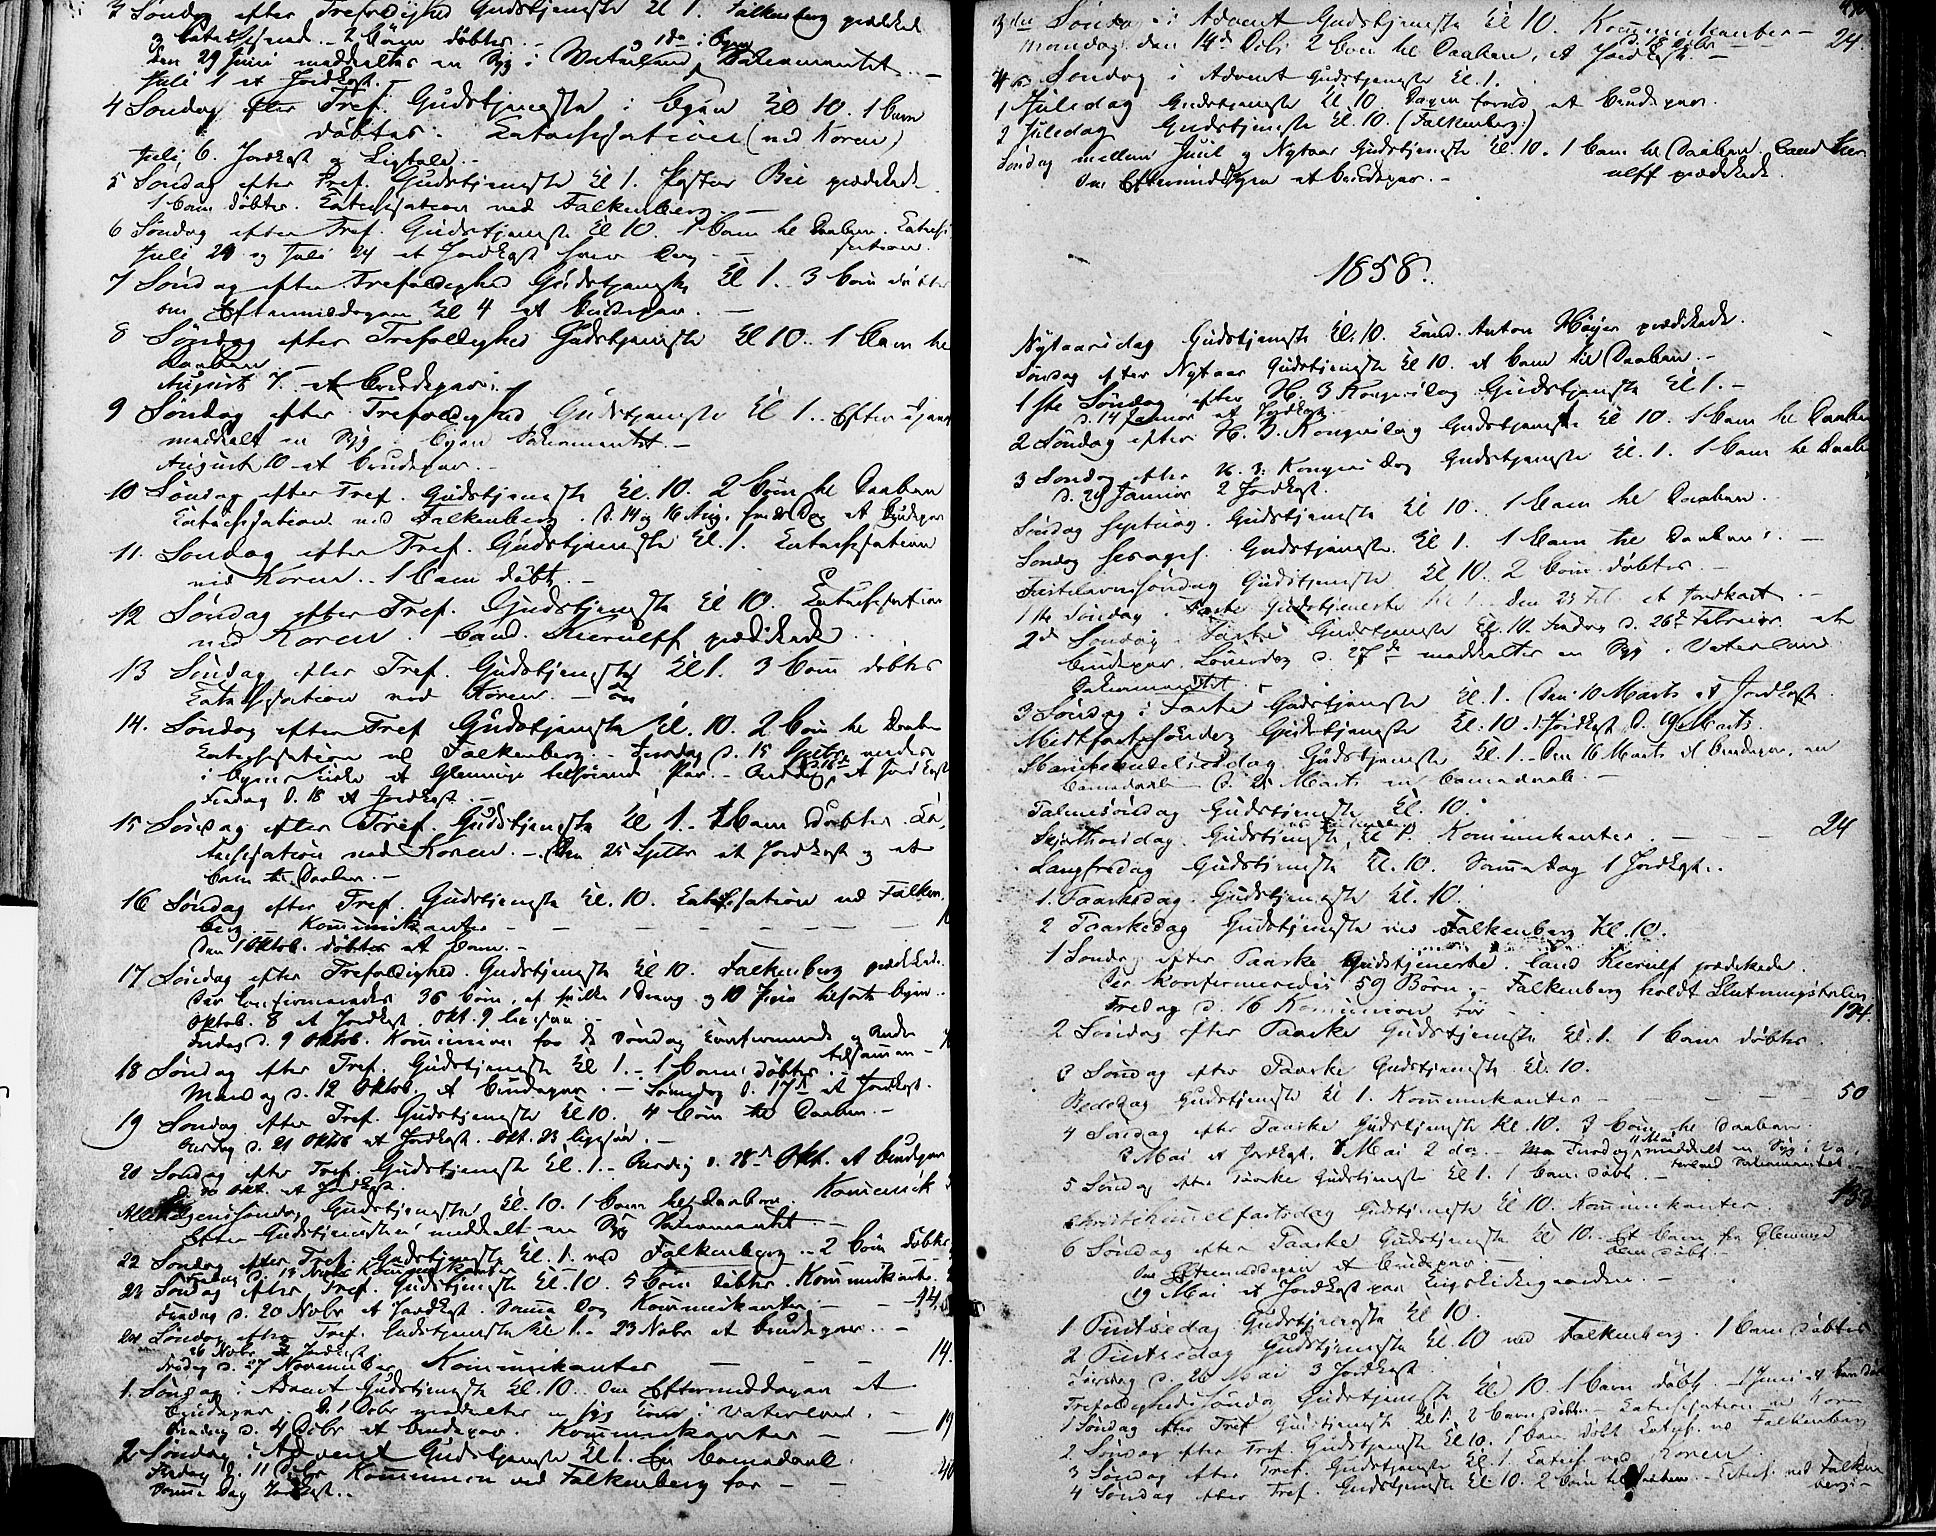 3 Søndag efter Trefoldighed Gudstjeneste Kl 1. Falkenberg prædikede
3 Catechisend. - 2 Børn døbter. -
Den 29 Juni meddeeltes en Syg i Vaterland Sakramentet. -
Juli 1 et Jordkast. -
4 Søndag efter Tref. Gudstjeneste i Byen Kl 10. 1 Barn
døbtes. Katachisation (ved Koren)
Juli 6. Jordkast og Ligtale. -
5 Søndag efter Tref. Gudstjeneste Kl 1. Pastor Bie prædikede
1 Barn døbter. Katechisation ved Falkenberg. -
6 Søndag efter Tref. Gudstjeneste Kl 10. 1 Barn til Daaben. Katechi
sation.
Juli 20 og Juli 24 et Jordkast hver Dag -
7 Søndag efter Trefoldighed Gudstjeneste Kl 1. 3 Børn døbter
om Eftermiddagen Kl 4 et Brudepar. -
8 Søndag efter Trefoldighed Gudstjeneste Kl 10. 1 Barn til
Daaben
August 7. et Brudepar. -
9 Søndag efter Trefoldighed Gudstjeneste Kl 1. Efter Tjenest
meddeelt en Syg i Byen Sakramentet. -
August 10 et Brudepar. -
10 Søndag efter Tref. Gudstjeneste Kl. 10. 2 Børn til Daaben
Katachisation ved Falkenberg. D. 14 og 16 Aug. hver Dag et Brudepar
11. Søndag efter Tref. Gudstjeneste Kl. 1. Katachisation
ved Koren. 1 Barn døbt. -
12 Søndag efter Tref. Gudstjeneste Kl 10. Katachisation
ved Koren. Cand. Kierulff prædikede.
13 Søndag efter Tref. Gudstjeneste Kl 1. 3 Børn døbtes
Katachisation ved Koren. -
14. Søndag efter Tref Gudstjeneste Kl. 10. 2 Børn til Daaben
Katachisation ved Falkenberg. - Tirsdag D. 15 Septbr viedes
i Byens Kirke et Glemmige tilhørende Par. - Onsdag et Jordkast
Fredag D. 18 et Jordkast. -
15 Søndag efter Tref. Gudstjeneste Kl 1. - 1 Barn døbter. Ka-
tachisation ved Koren. - Den 25 Septbr et Jordkast og et
Barn til Daaben. -
16 Søndag efter Tref. Gudstjeneste Kl. 10. Katachisation ved Falken
berg. - Kommunikanter -
Den 1 Oktob. døbtes et Barn. -
17 Søndag efter Trefoldighed. Gudstjeneste Kl 10. Falkenberg prædikede.
Der Confirmeredes 36 Børn, af hvilke 1 Dreng og 10 Piger tilhørte Byen.
Oktob. 8 et Jordkast. Okt. 9 ligesaa. -
Fredag D. 9 Oktob. Kommunion for de Søndag Confirmerede og Andre
tilsamen -
18 Søndag efter Tref. Gudstjeneste Kl 1. - 1 Barn døbter. -
Mandag D. 12 Oktob. et Brudepar. - Løverdag D. 17de et Jordkast.
19 Søndag efter Tref. Gudstjeneste Kl 10. 4 Børn til Daaben. -
Onsdag D. 21 Oktob et Jordkast. Okt. 23 ligesaa. -
20 Søndag efter Tref. Gudstjeneste Kl. 1. - Onsdag D. 28de Okt. et Brudepar
D. 30 Okt. et Jordkast.
Allehelgenssøndag Gudstjeneste Kl. 10. 1 Barn til Daaben. Kommunik
Efter Gudstjenesten meddeelt en Syg Sakramentet -
22 Søndag efter Tref. Gudstjeneste Kl. 1. ved Falkenberg. - 2 Børn døbter
Fredag D. 13 Novbr Kommunikanter
23 Søndag efter Tref. Gudstjeneste Kl. 10. 5 Børn døbter. Kommunikanter.
Fredag D. 20 Nobr et Jordkast. Samme Dag Kommunikanter. - 14.
24 Søndag efter Tref. Gudstjeneste Kl 1. - 23 Nobr et Brudepar. -
26 Nobr et Jordkast.
Fredag D. 27 November Kommunikanter - - - 14.
1. Søndag i Advent Gudstjeneste Kl. 10. Om Eftermiddagen et
Brudepar. D. 1 Debr meddeeltes en Syg Kone i Vaterland.
Fredag D. 4 Debr et Brudepar. Kommunikanter - - 19
2 Søndag i Advent Gudstjeneste Kl 1. En Barnedaab.
Fredag D. 11 Debr Kommunion ved Falkenberg for - - 40
Samme Dag Jordkast. -
3die Søndag i Advent Gudstjeneste Kl 10. Kommunikanter - 24.
Mandag den 14de Debr 2 Børn til Daaben, et Jordkast. -
4de Søndag i Advent Gudstjeneste Kl 1.
1 Juledag Gudstjeneste Kl 10. Dagen forud et Brudepar.
2 Juledag Gudstjeneste Kl. 10. (Falkenberg.)
Søndag mellem Juul og Nytaar Gudstjeneste Kl. 10. 1 Barn til Daaben. Cand Kier
ulff prædikede.
Om Eftermiddagen et Brudepar. -
1858.
Nytaarsdag Gudstjeneste Kl. 10. Cand. Anton Høyer prædikede.
Søndag efter Nytaar Gudstjeneste Kl 10. et Barn til Daaben. -
1ste Søndag efter H. 3 Kongersdag Gudstjeneste Kl 1. -
D. 14 Januar et Jordkast.
2 Søndag efter H. 3. Kongersdag Gudstjeneste Kl 10. 1 Barn til Daaben
3 Søndag efter H. 3. Kongers Dag Gudstjeneste Kl. 1. 1 Barn til Daaben
D. 29 Januar 2 Jordkast.
Søndag Septuag. Gudstjeneste Kl 10. 1 Barn til Daaben.
Søndag Sexages. Gudstjeneste Kl 1. 1 Barn til Daaben. -
Fastelavnssøndag Gudstjeneste Kl 10. 2 Børn døbtes. -
1ste Søndag i Faste Gudstjeneste Kl 1. Den 23 Feb. et Jordkast. -
2den Søndag i Faste Gudstjeneste Kl. 10. Fredag D. 26de Februar et
Brudepar. Løverdag D. 27de meddeeltes en Syg i Vaterland
Sakramentet.
3 Søndag i Faste Gudstjeneste Kl. 1. Den 10 Marts et Jordkast
Midfastesøndag Gudstjeneste Kl. 10. 1 Jordkast D. 19 Marts
Mariæbudelsesdag Gudstjeneste Kl. 1. - Den 16 Marts et Brudepar, en
Barnedaab D. 21 Marts en Barnedaab. -
Palmesøndag Gudstjeneste Kl. 10.
Skjærthorsdag. Gudstjeneste Kl 1. Kommunikanter. - - - 24
Langfredag Gudstjeneste Kl. 10. Samme Dag 1 Jordkast. -
1. Paaskedag. Gudstjeneste Kl. 10.
2 Paaskedag Gudstjeneste ved Falkenberg Kl. 10.
1 Søndag efter Paaske Gudstjeneste. Cand Kierulf prædikede.
Der konfirmeredes 59 Børn. - Falkenberg holdt Slutningstalen
Fredag D. 16 Kommunion for - 124.
2 Søndag efter Paaske Gudstjeneste Kl. 1. 1 Barn døbtes.
3 Søndag efter Paaske Gudstjeneste Kl. 10.
Bededag Gudstjeneste Kl 1. Kommunikanter - - - 50
4 Søndag efter Paaske Gudstjeneste Kl. 10. 3 Børn til Daaben.
3 Mai et Jordkast. 8 Mai 2 do. - Tirsdag 11 Mai meddeelt en Syg i Va-
terland Sakramentet. -
5. Søndag efter Paaske Gudstjeneste Kl 1. 1 Barn døbt. -
Christi himmelfartsdag Gudstjeneste Kl 10. Kommunikanter.
6 Søndag efter Paaske Gudstjeneste Kl 10. - Et Barn fra Glemmige
blev døbt. -
Om Eftermiddagen et Brudepar. -
19 Mai et Jordkast paa Krigskirkegaarden. -
1 Pintsedag Gudstjeneste Kl 10.
2 Pintsedag Gudstjeneste Kl. 10 ved Falkenberg. 1 Barn døbtes
Tirsdag D. 26 Mai 3 Jordkast
Trefoldigheds Søndag Gudstjeneste Kl 10. 1 Barn døbt. - 1 Juni et Barn døbt
1 Søndag efter Tref Gudstjeneste Kl 1. 2 Børn døbte - Katachisation ved Koren
2 Søndag efter Tref. Gudstjeneste Kl 10. 1 Barn døbt Katech. ved Falkenberg
3 Søndag efter Tref. Gudstjeneste Kl 1. Catech ved Koren.
4 Søndag efter Tref. Gudstjeneste Kl 10. 2 Børn til Daaben. - Catech. ved Falken
berg. -